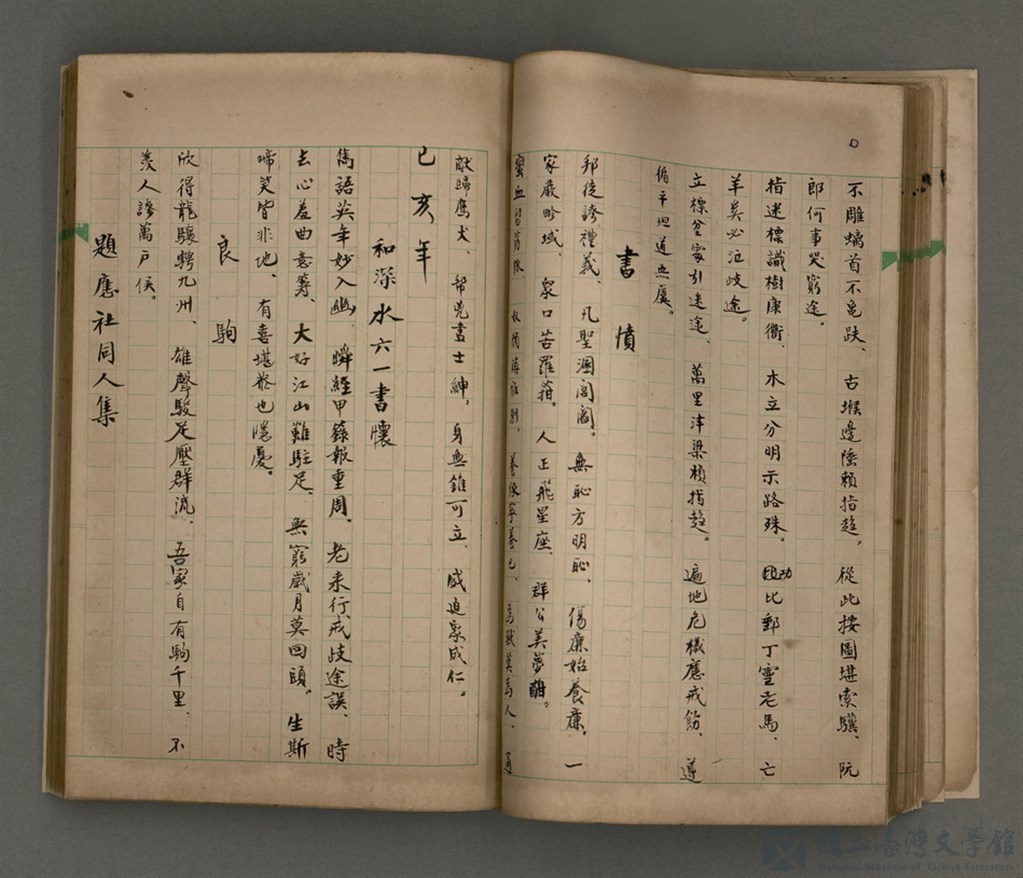 不雕螭首不龜趺、古堠邊陲賴指趁，從此按圖堪索驥、阮
郎何事哭窮途。
指迷標識樹康衢、木立分明示路殊。功比郵丁靈老馬、亡
羊奚必泣歧途。
立標岔家引迷途、萬里津梁賴指趁。遍地危機應戒飭、遵
循平坦道無虞。
書憤
邦從誇禮義、凡聖溷閭閻。無恥方明恥、傷廉始養廉、一
家嚴畛域、眾口苦羅箝。人正飛星座、群公美夢酣。
獻歸鷹犬、幫兇盡士紳，身無錐可立、威迫眾成仁。
己亥年
和深水六一書懷
雋語英年妙入幽、瞬經甲籙報重周、老來行戒歧途誤、時
去心羞曲意籌、大好江山難駐足、無窮歲月莫回頭。生斯
啼笑皆非地、有喜堪於也隱憂。
良駒
欣得龍驤騁九州、雄聲駿足壓群流、吾家自有駒千里、不
羨人誇萬戶侯。
題應社同人集
國立臺灣文學館
National Museum of Taiwan Literature